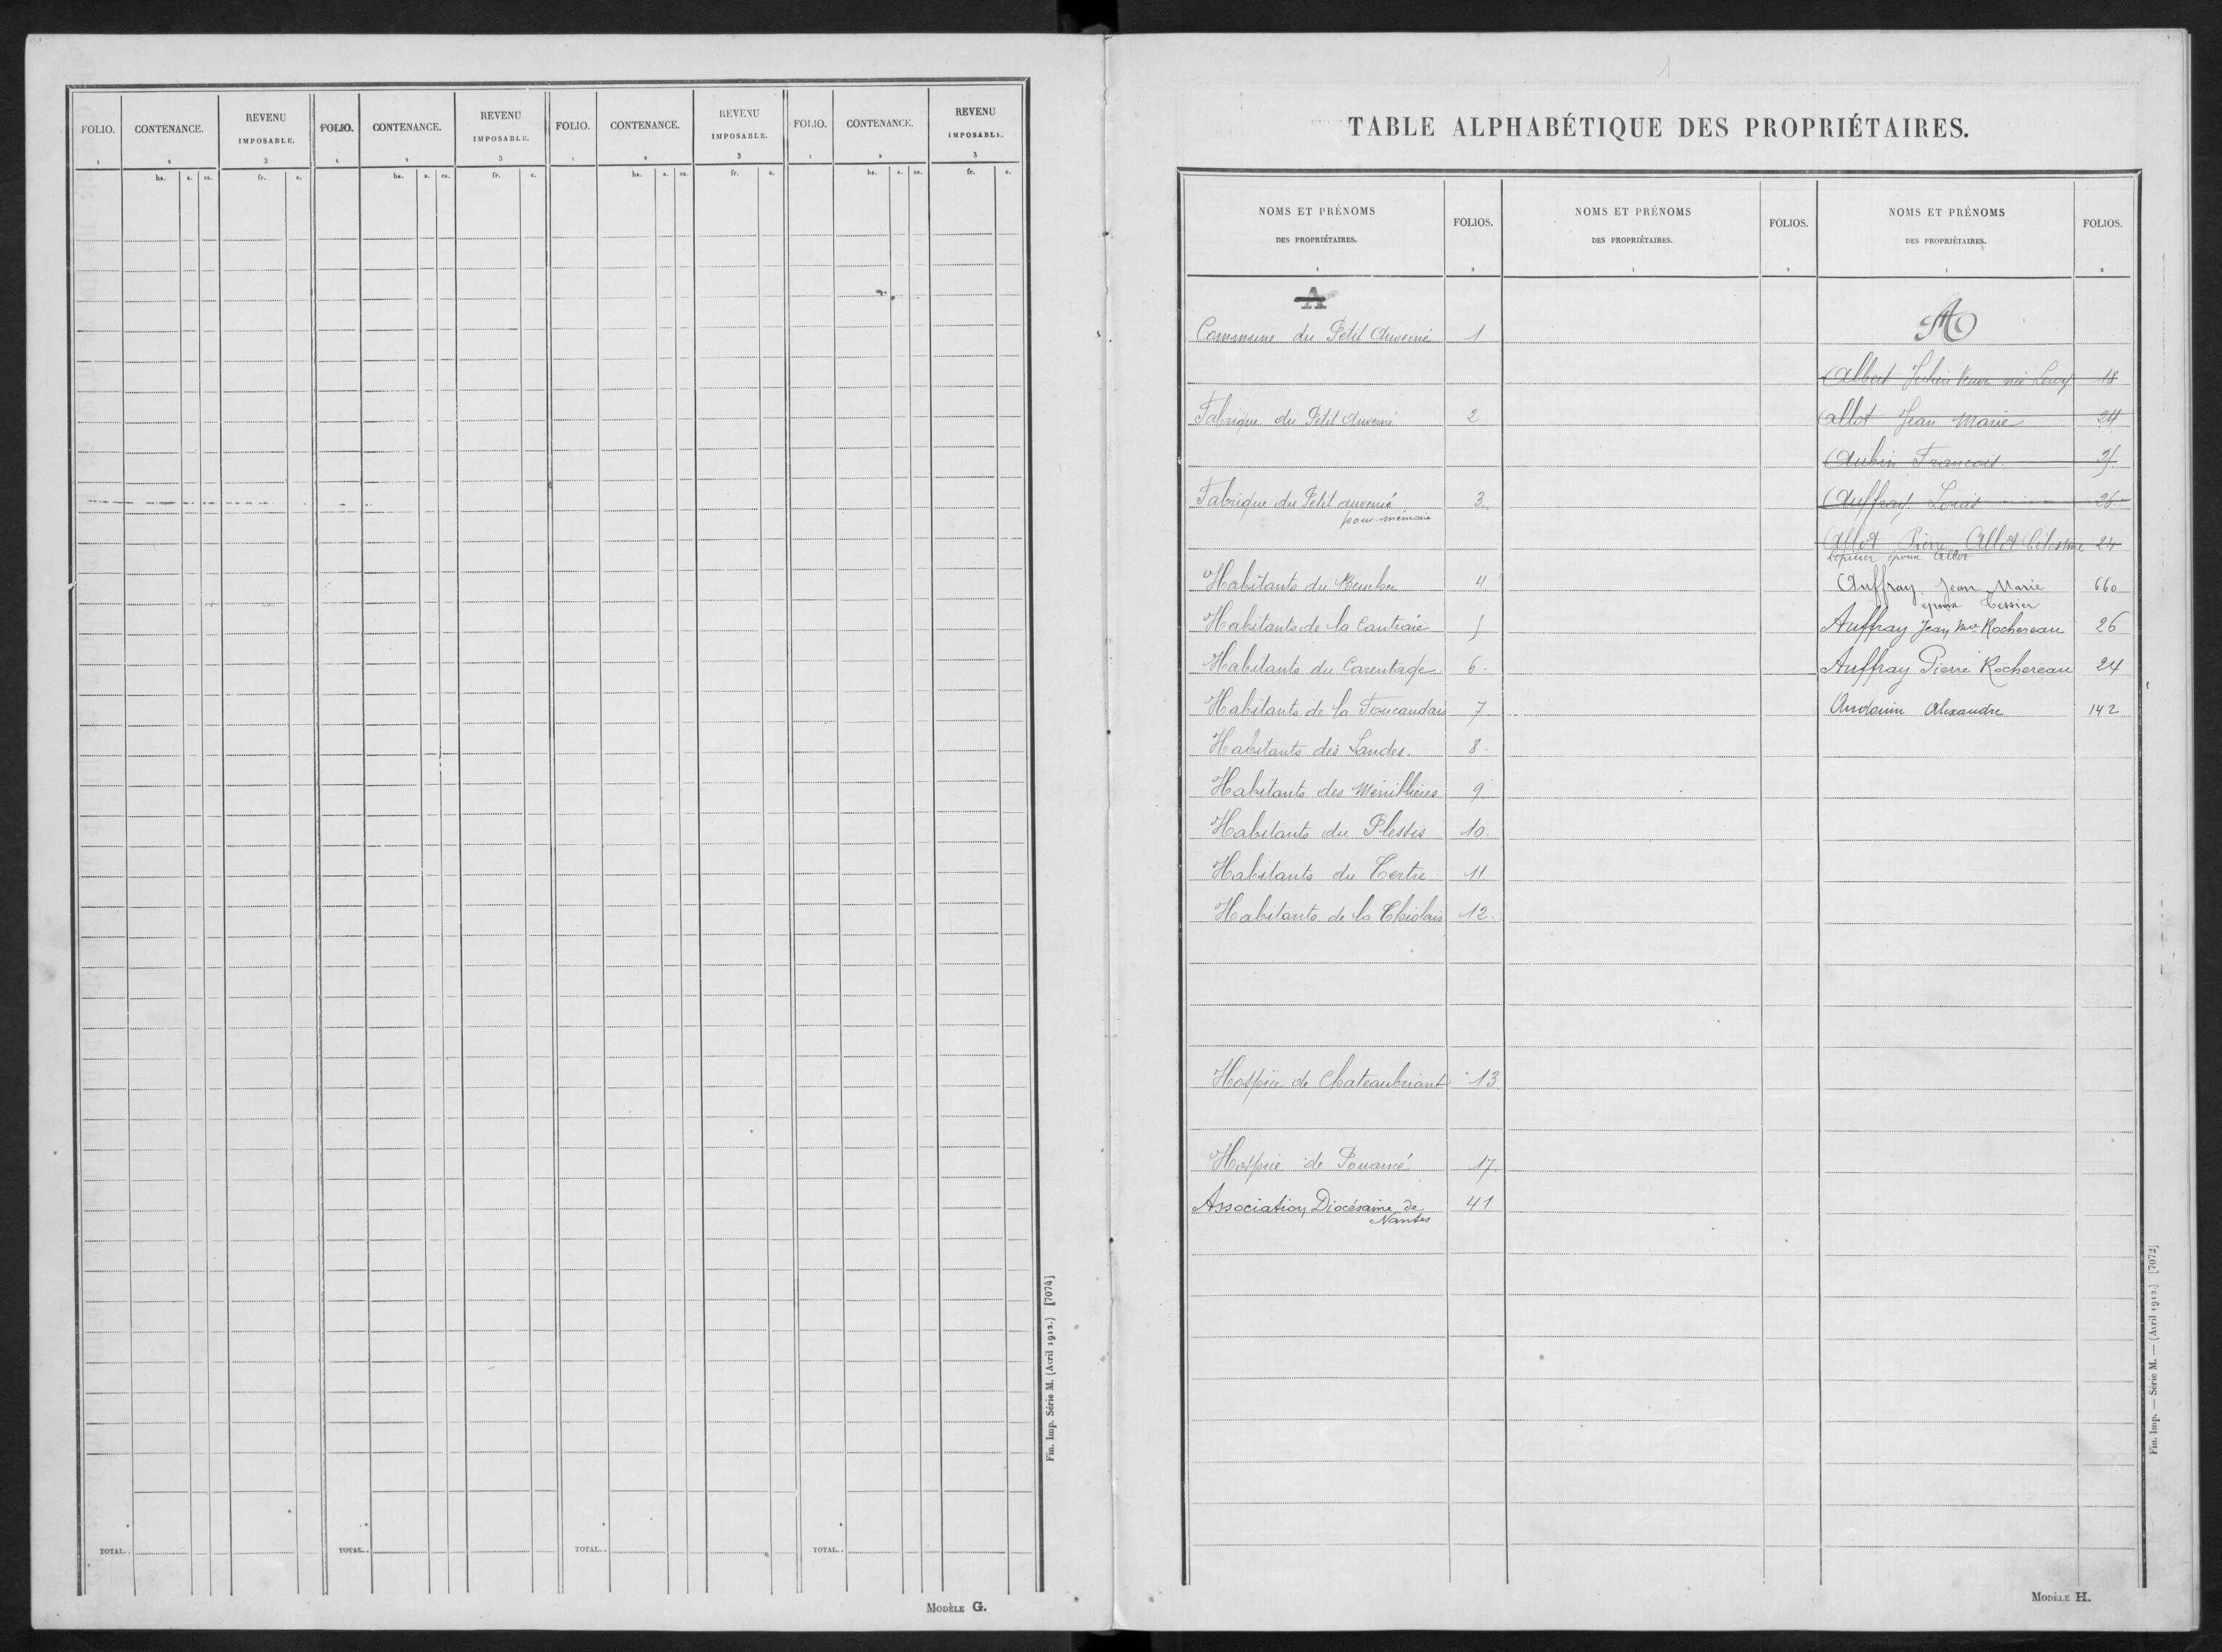 FOLIO. CONTENANCE. REVENU IMPOSABLE. FOLIO. CONTENANCE. REVENU IMPOSABLE. FOLIO. CONTENANCE. REVENU IMPOSABLE. FOLIO. CONTENANCE. REVENU IMPOSABLE.
1 2 3 1 2 3 1 2 3 1 2 3
ha. a. ca. fr. c. ha. a. ca. fr. c. ha. a. ca. fr. c. ha. a. ca. fr. c.
TOTAL.. TOTAL.. TOTAL.. TOTAL..
Fin. Imp. Série M. (Avril 1912.) [7074]
MODÈLE G.
1
TABLE ALPHABÉTIQUE DES PROPRIÉTAIRES.
NOMS ET PRÉNOMS DES PROPRIÉTAIRES. FOLIOS. NOMS ET PRÉNOMS DES PROPRIÉTAIRES. FOLIOS. NOMS ET PRÉNOMS DES PROPRIÉTAIRES. FOLIOS.
1 2 1 2 1 2
A
Commune du Petit Auverné 1
Fabrique du Petit Auverné 2
Fabrique du Petit Auverné 3
pour mémoire
Habitants du 4
Habitants de la 5
Habitants du Carentage 6
Habitants de la Foucaudais 7
Habitants des Landes 8
Habitants des 9
Habitants du Plessis 10
Habitants du Tertre 11
Habitants de la 12
Hospice de Chateaubriant 13
Hospice de Pouancé 17
Association Diocésaine de
Nantes 41
A
Albert Julien Veuve née Leray 18
Allot Jean Marie 24
Aubin François 25
Auffray Louis 26
Allot Pierre Allot Célestine 24
époux Allot
Auffray Jean Marie 660
époux Tessier
Auffray Jean Mie Rochereau 26
Auffray Pierre Rochereau 24
Audouin Alexandre 142
Fin. Imp. — Série M. — (Avril 1912.) [7072]
MODÈLE H.